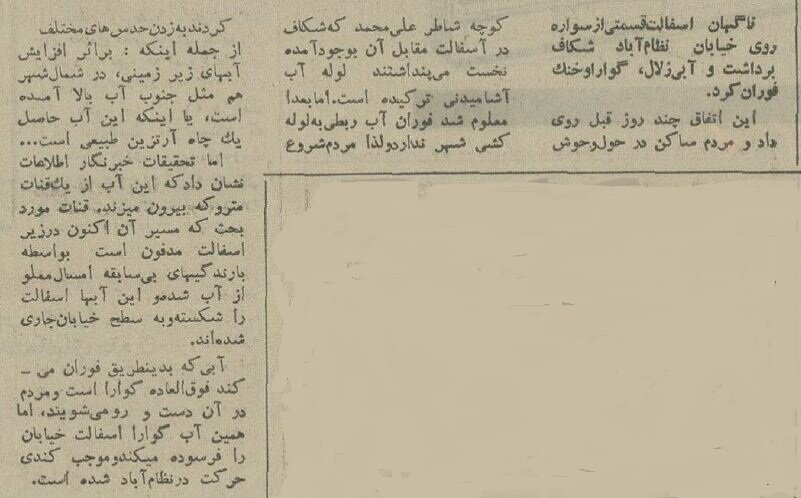 ناگهان اسفالت قسمتی از سواره
روی خیابان نظام‌آباد شکاف
برداشت و آبی زلال، گوارا و خنك
فوران کرد.
این اتفاق چند روز قبل روی
داد و مردم ساکن در حول و حوش
کوچه شاطر علی‌محمد که شکاف
در آسفالت مقابل آن بوجود آمده
نخست می‌پنداشتند لوله آب
آشامیدنی ترکیده است. اما بعدا
معلوم شد فوران آب ربطی به لوله
کشی شهر ندارد ولذا مردم شروع
کردند به زدن حدس های مختلف
از جمله اینکه : براثر افزایش
آبهای زیر زمینی، در شمال شهر
هم مثل جنوب آب بالا آمده
است، یا اینکه این آب حاصل
یك چاه آرتزین طبیعی است...
اما تحقیقات خبرنگار اطلاعات
نشان داد که این آب از یك قنات
متروکه بیرون میزند. قنات مورد
بحث که مسیر آن اکنون در زیر
اسفالت مدفون است بواسطه
بارندگیهای بی‌سابقه امسال مملو
از آب شده و این آبها اسفالت
را شکسته و به سطح خیابان جاری
شده‌اند.
آبی که بدینطریق فوران می ـ
کند فوق‌العاده گوارا است و مردم
در آن دست و رو می‌شویند، اما
همین آب گوارا اسفالت خیابان
را فرسوده میکند و موجب کندی
حرکت در نظام‌آباد شده است.